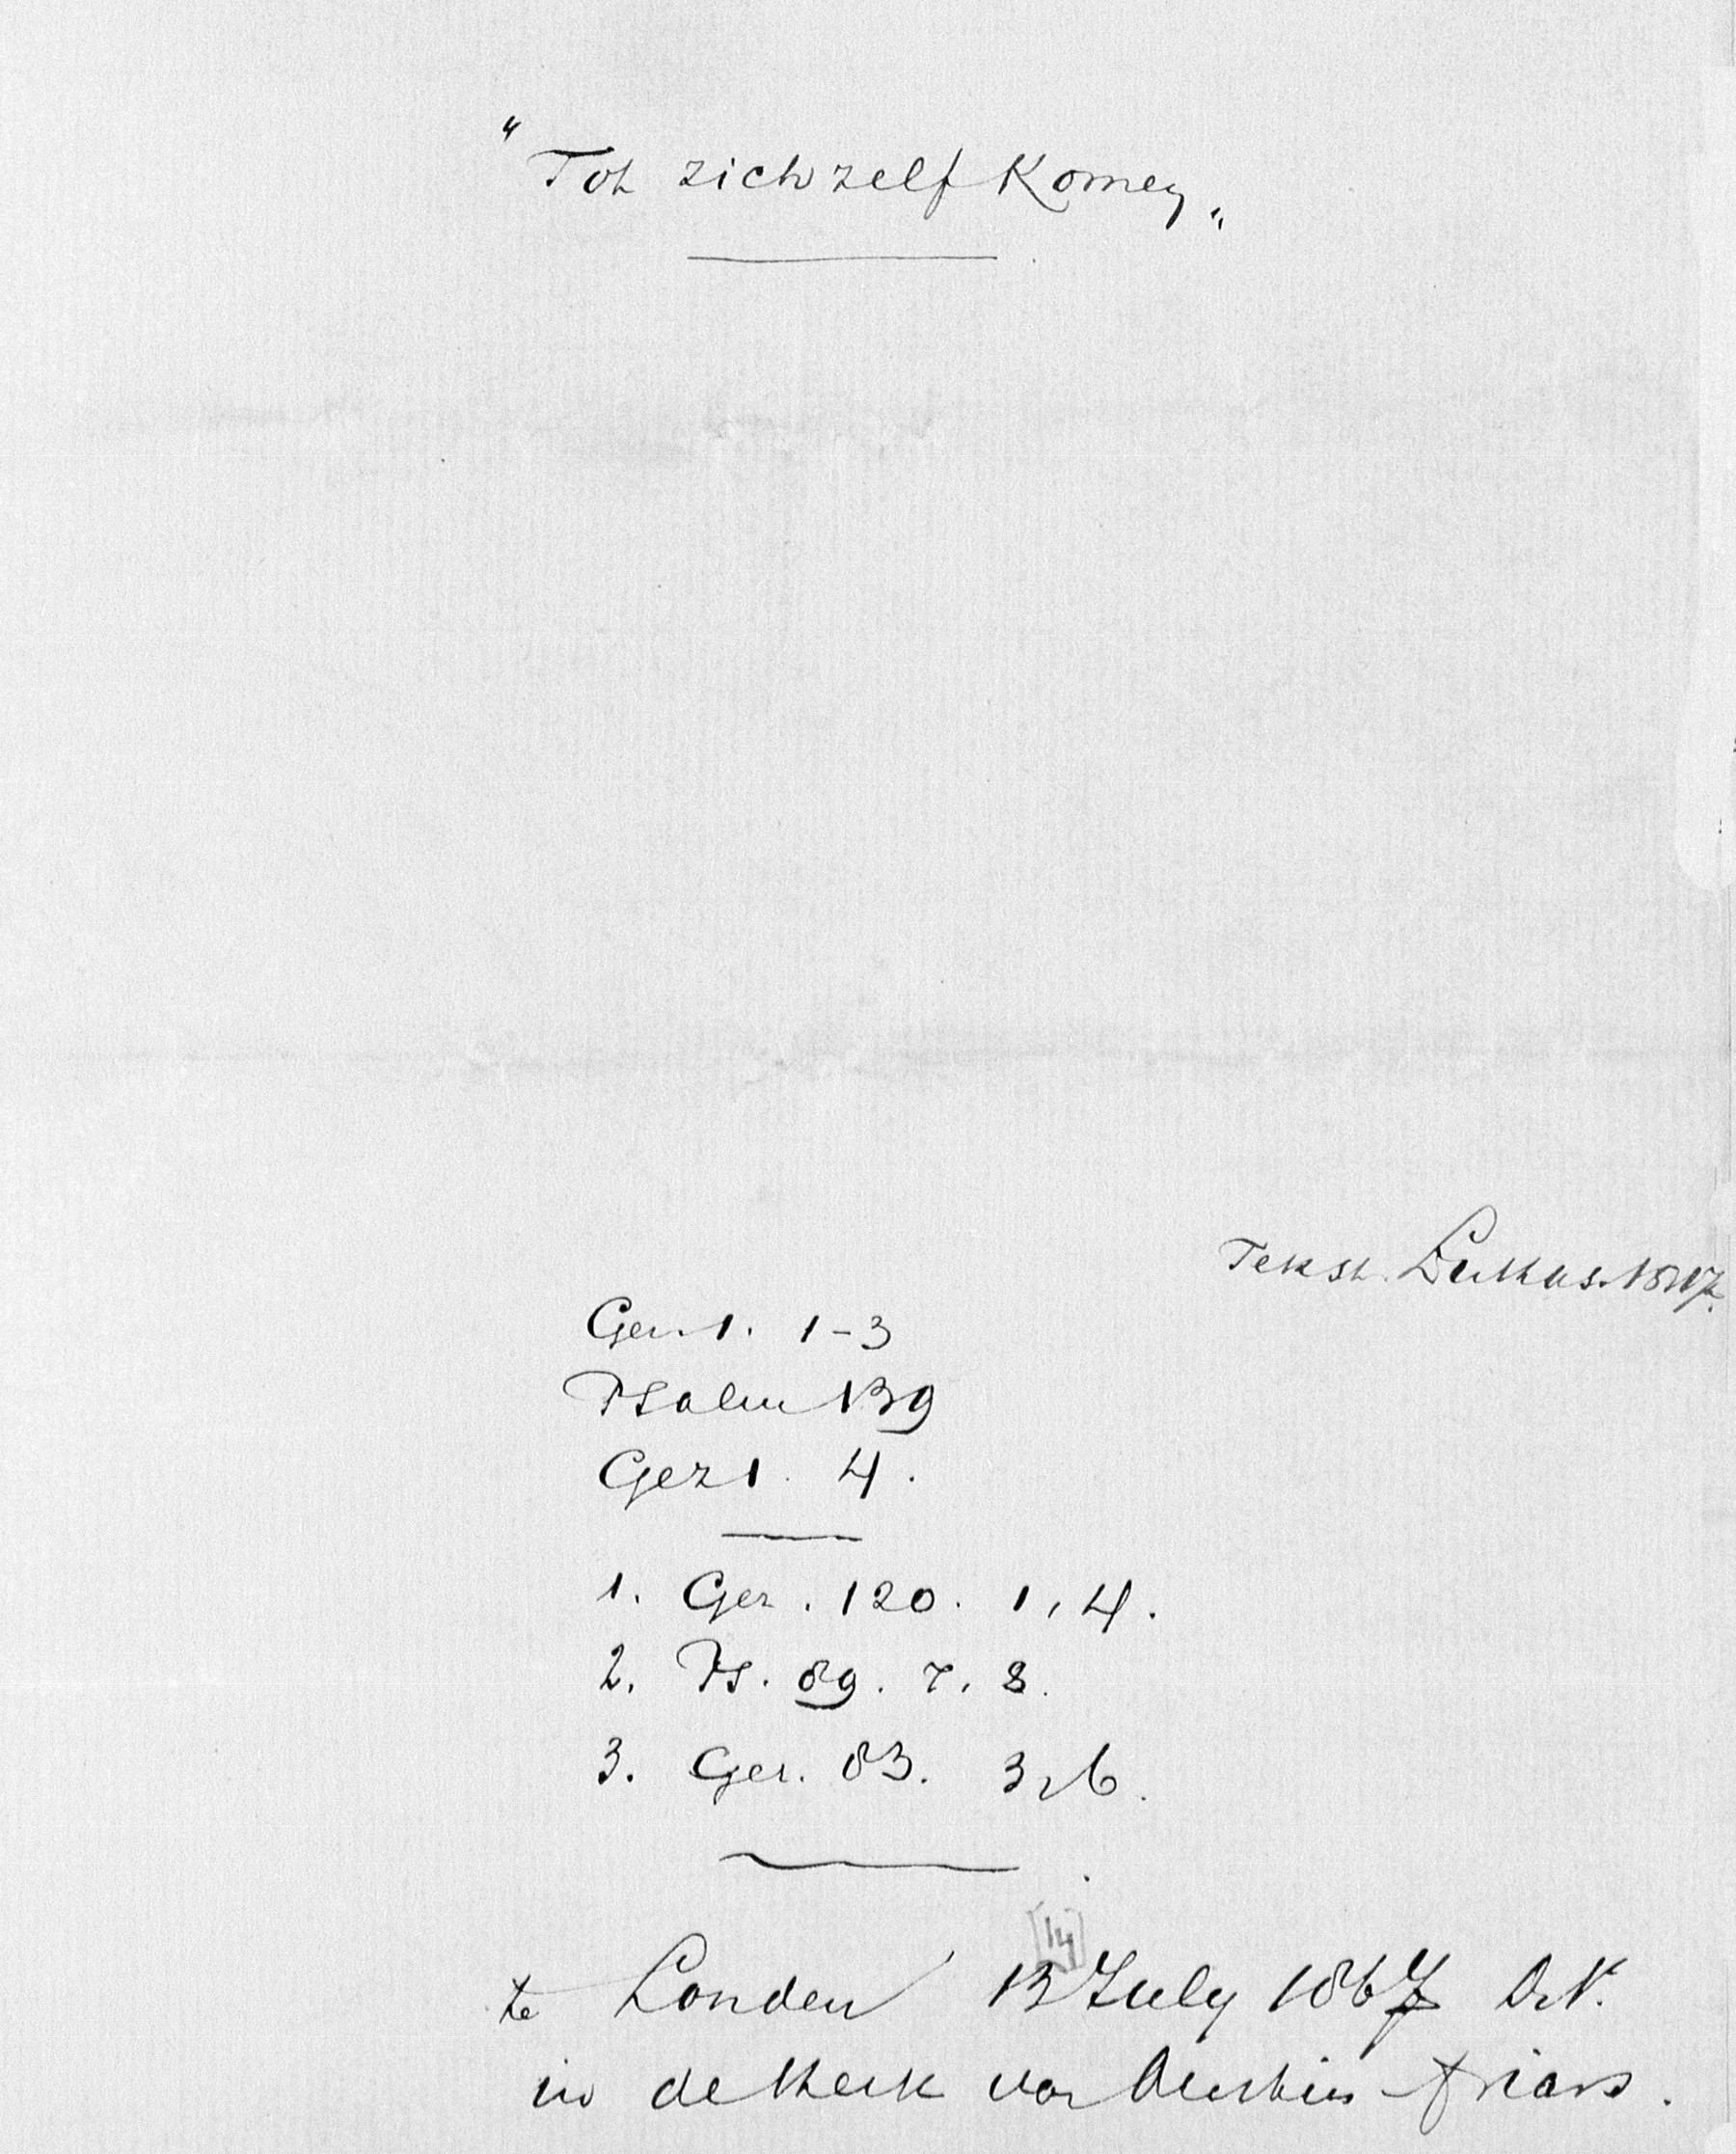 "Tot zichzelf Komen"
Tekst. Lukas. 15:17.
Gez. 1. 1-3
Psalm 139
Gez 1. 4.
1. Gez. 120. 1, 4.
2. Ps. 89. 7. 8.
3. Gez. 83. 3 6.
[14]
te Londen 13 July 1867
in de Kerk van Austin friars.